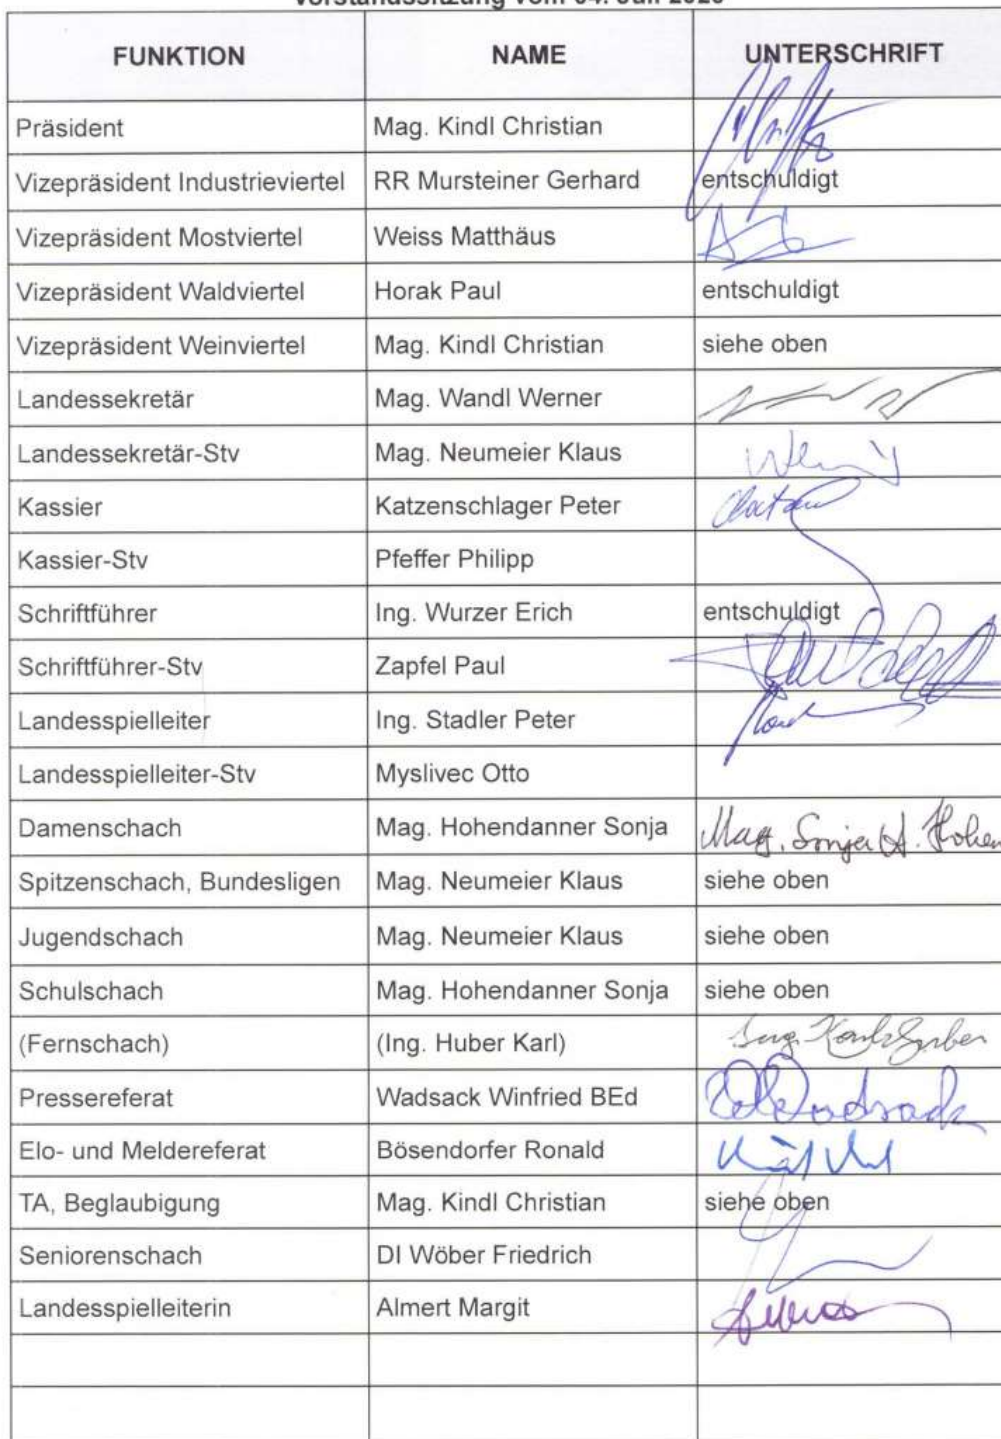 FUNKTION NAME UNTERSCHRIFT
Präsident Mag. Kindl Christian
Vizepräsident Industrieviertel RR Mursteiner Gerhard entschuldigt
Vizepräsident Mostviertel Weiss Matthäus
Vizepräsident Waldviertel Horak Paul entschuldigt
Vizepräsident Weinviertel Mag. Kindl Christian siehe oben
Landessekretär Mag. Wandl Werner
Landessekretär-Stv Mag. Neumeier Klaus
Kassier Katzenschlager Peter
Kassier-Stv Pfeffer Philipp
Schriftführer Ing. Wurzer Erich entschuldigt
Schriftführer-Stv Zapfel Paul
Landesspielleiter Ing. Stadler Peter
Landesspielleiter-Stv Myslivec Otto
Damenschach Mag. Hohendanner Sonja Mag. Sonja H. Hohen
Spitzenschach, Bundesligen Mag. Neumeier Klaus siehe oben
Jugendschach Mag. Neumeier Klaus siehe oben
Schulschach Mag. Hohendanner Sonja siehe oben
(Fernschach) (Ing. Huber Karl) Ing. Karl Huber
Pressereferat Wadsack Winfried BEd Wadsack
Elo- und Meldereferat Bösendorfer Ronald
TA, Beglaubigung Mag. Kindl Christian siehe oben
Seniorenschach DI Wöber Friedrich
Landesspielleiterin Almert Margit